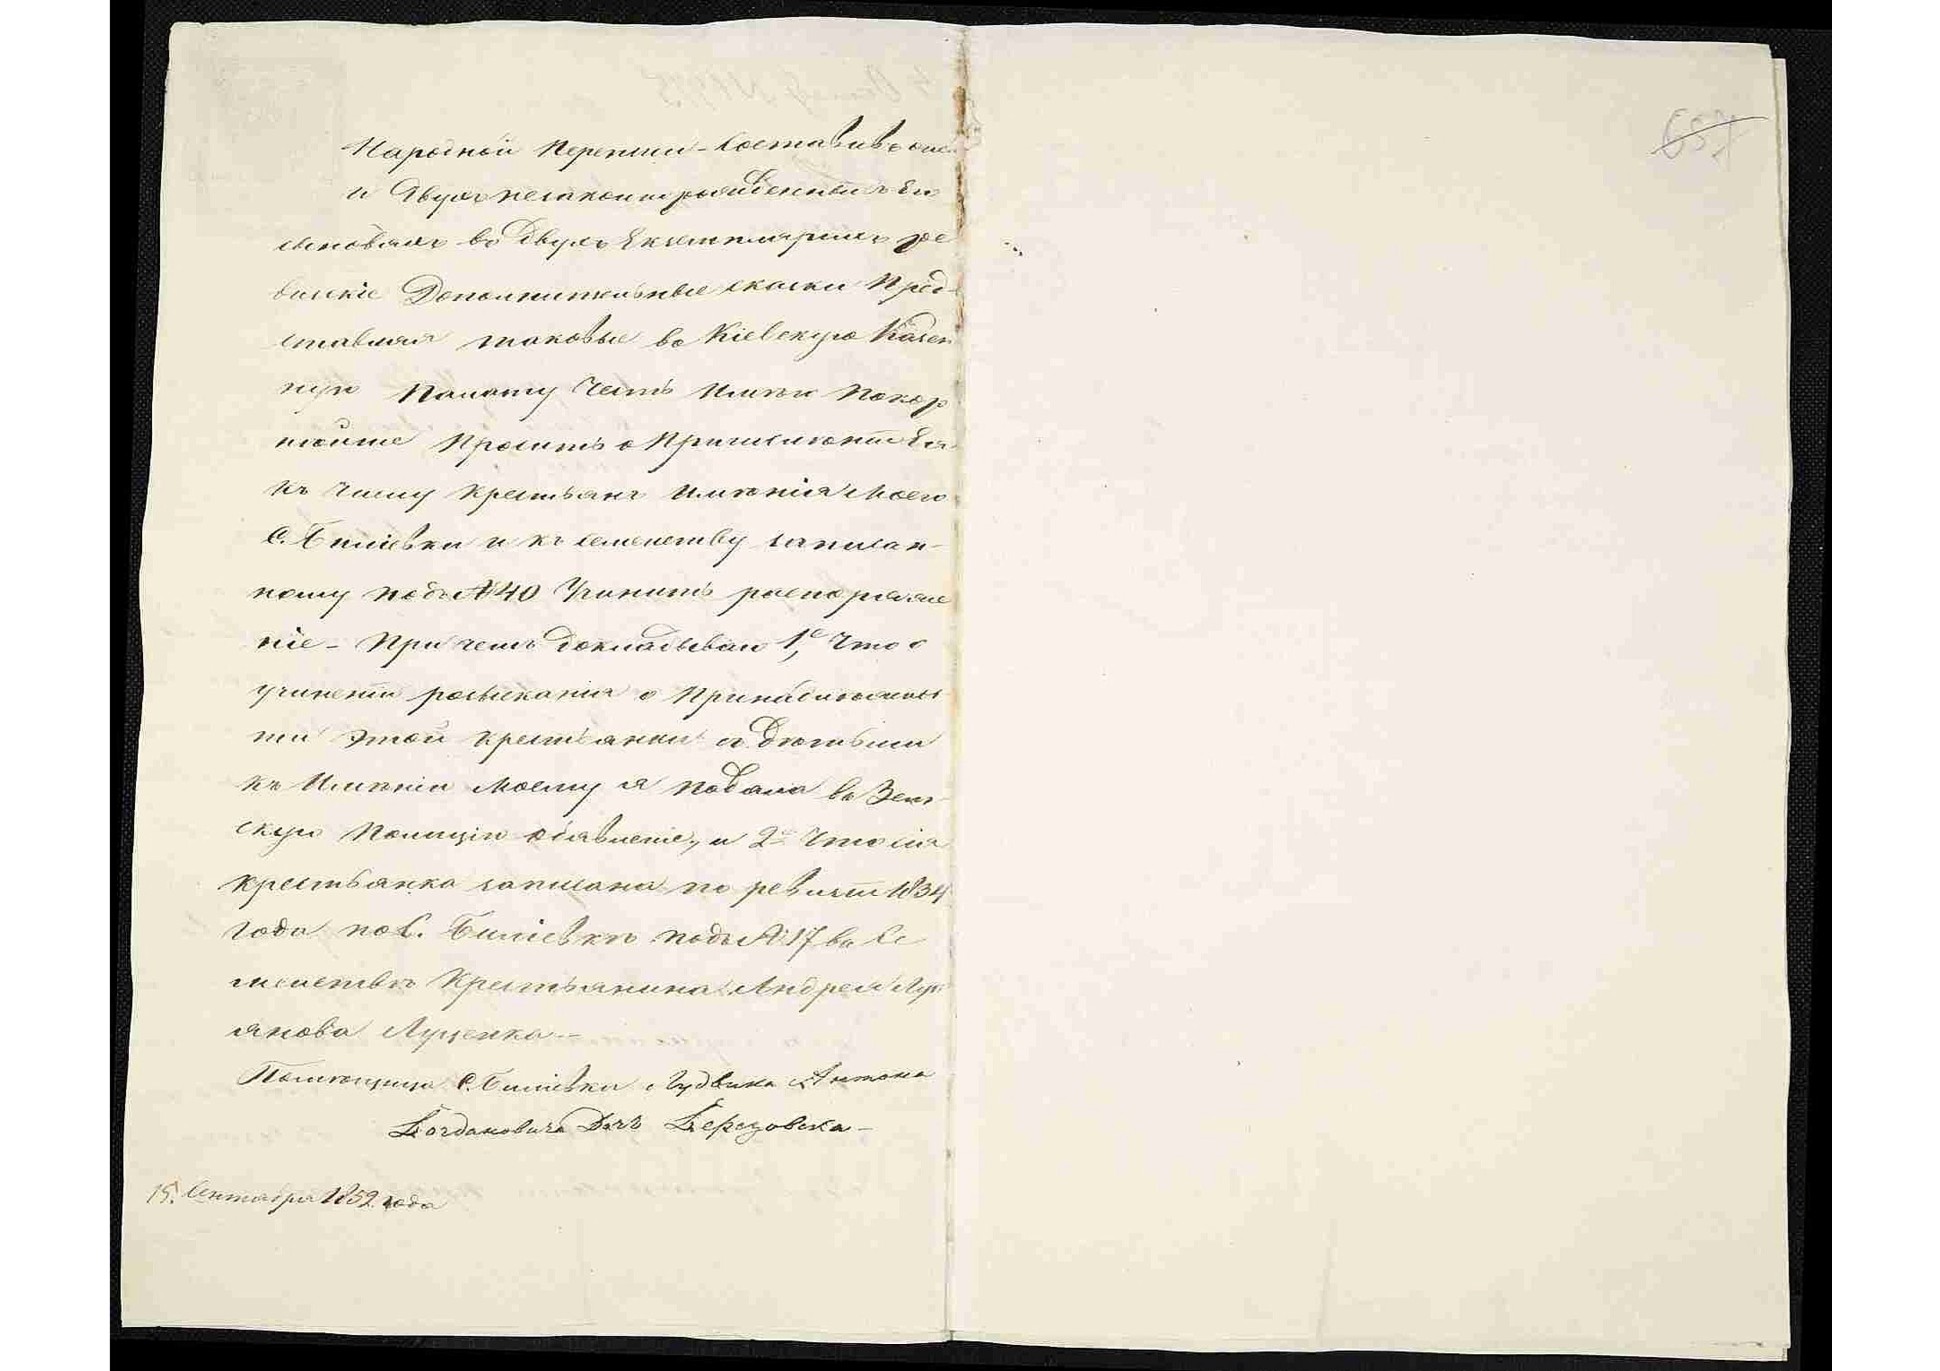 Народной Переписи - Составивъ о ней
и Двухъ незаконнорожденныхъ Ея
сыновьяхъ въ Двухъ Екземплярахъ ре
визскіе Дополнительные сказки Пред-
ставляя таковые въ Кіевскую Казен
ную Палату Честь Имѣю Покор
нѣйше Просить о Причисленіи Ея
къ числу крестьянъ имѣнія Моего
С. Билiевки и къ семейству записан-
ному подъ № 40 Учинить распоряже
ніе - При чемъ докладываю 1е, Что о
учиненіи розысканія о Принадлежнос
ти этой крестьянки съ дѣтьми
къ Имѣнію Моему я подала въ Зем-
скую Полицію объявленіе, и 2е Что сія
крестьянка записана по ревизіи 1834
года по С. Билiевкѣ подъ № 17 въ Се
мействѣ Крестьянина Андрея
Луценка -
Помѣщица С. Билiевки Людвика Антона
Богдановича Дочь Березовска -
15. Сентября 1852 года
657